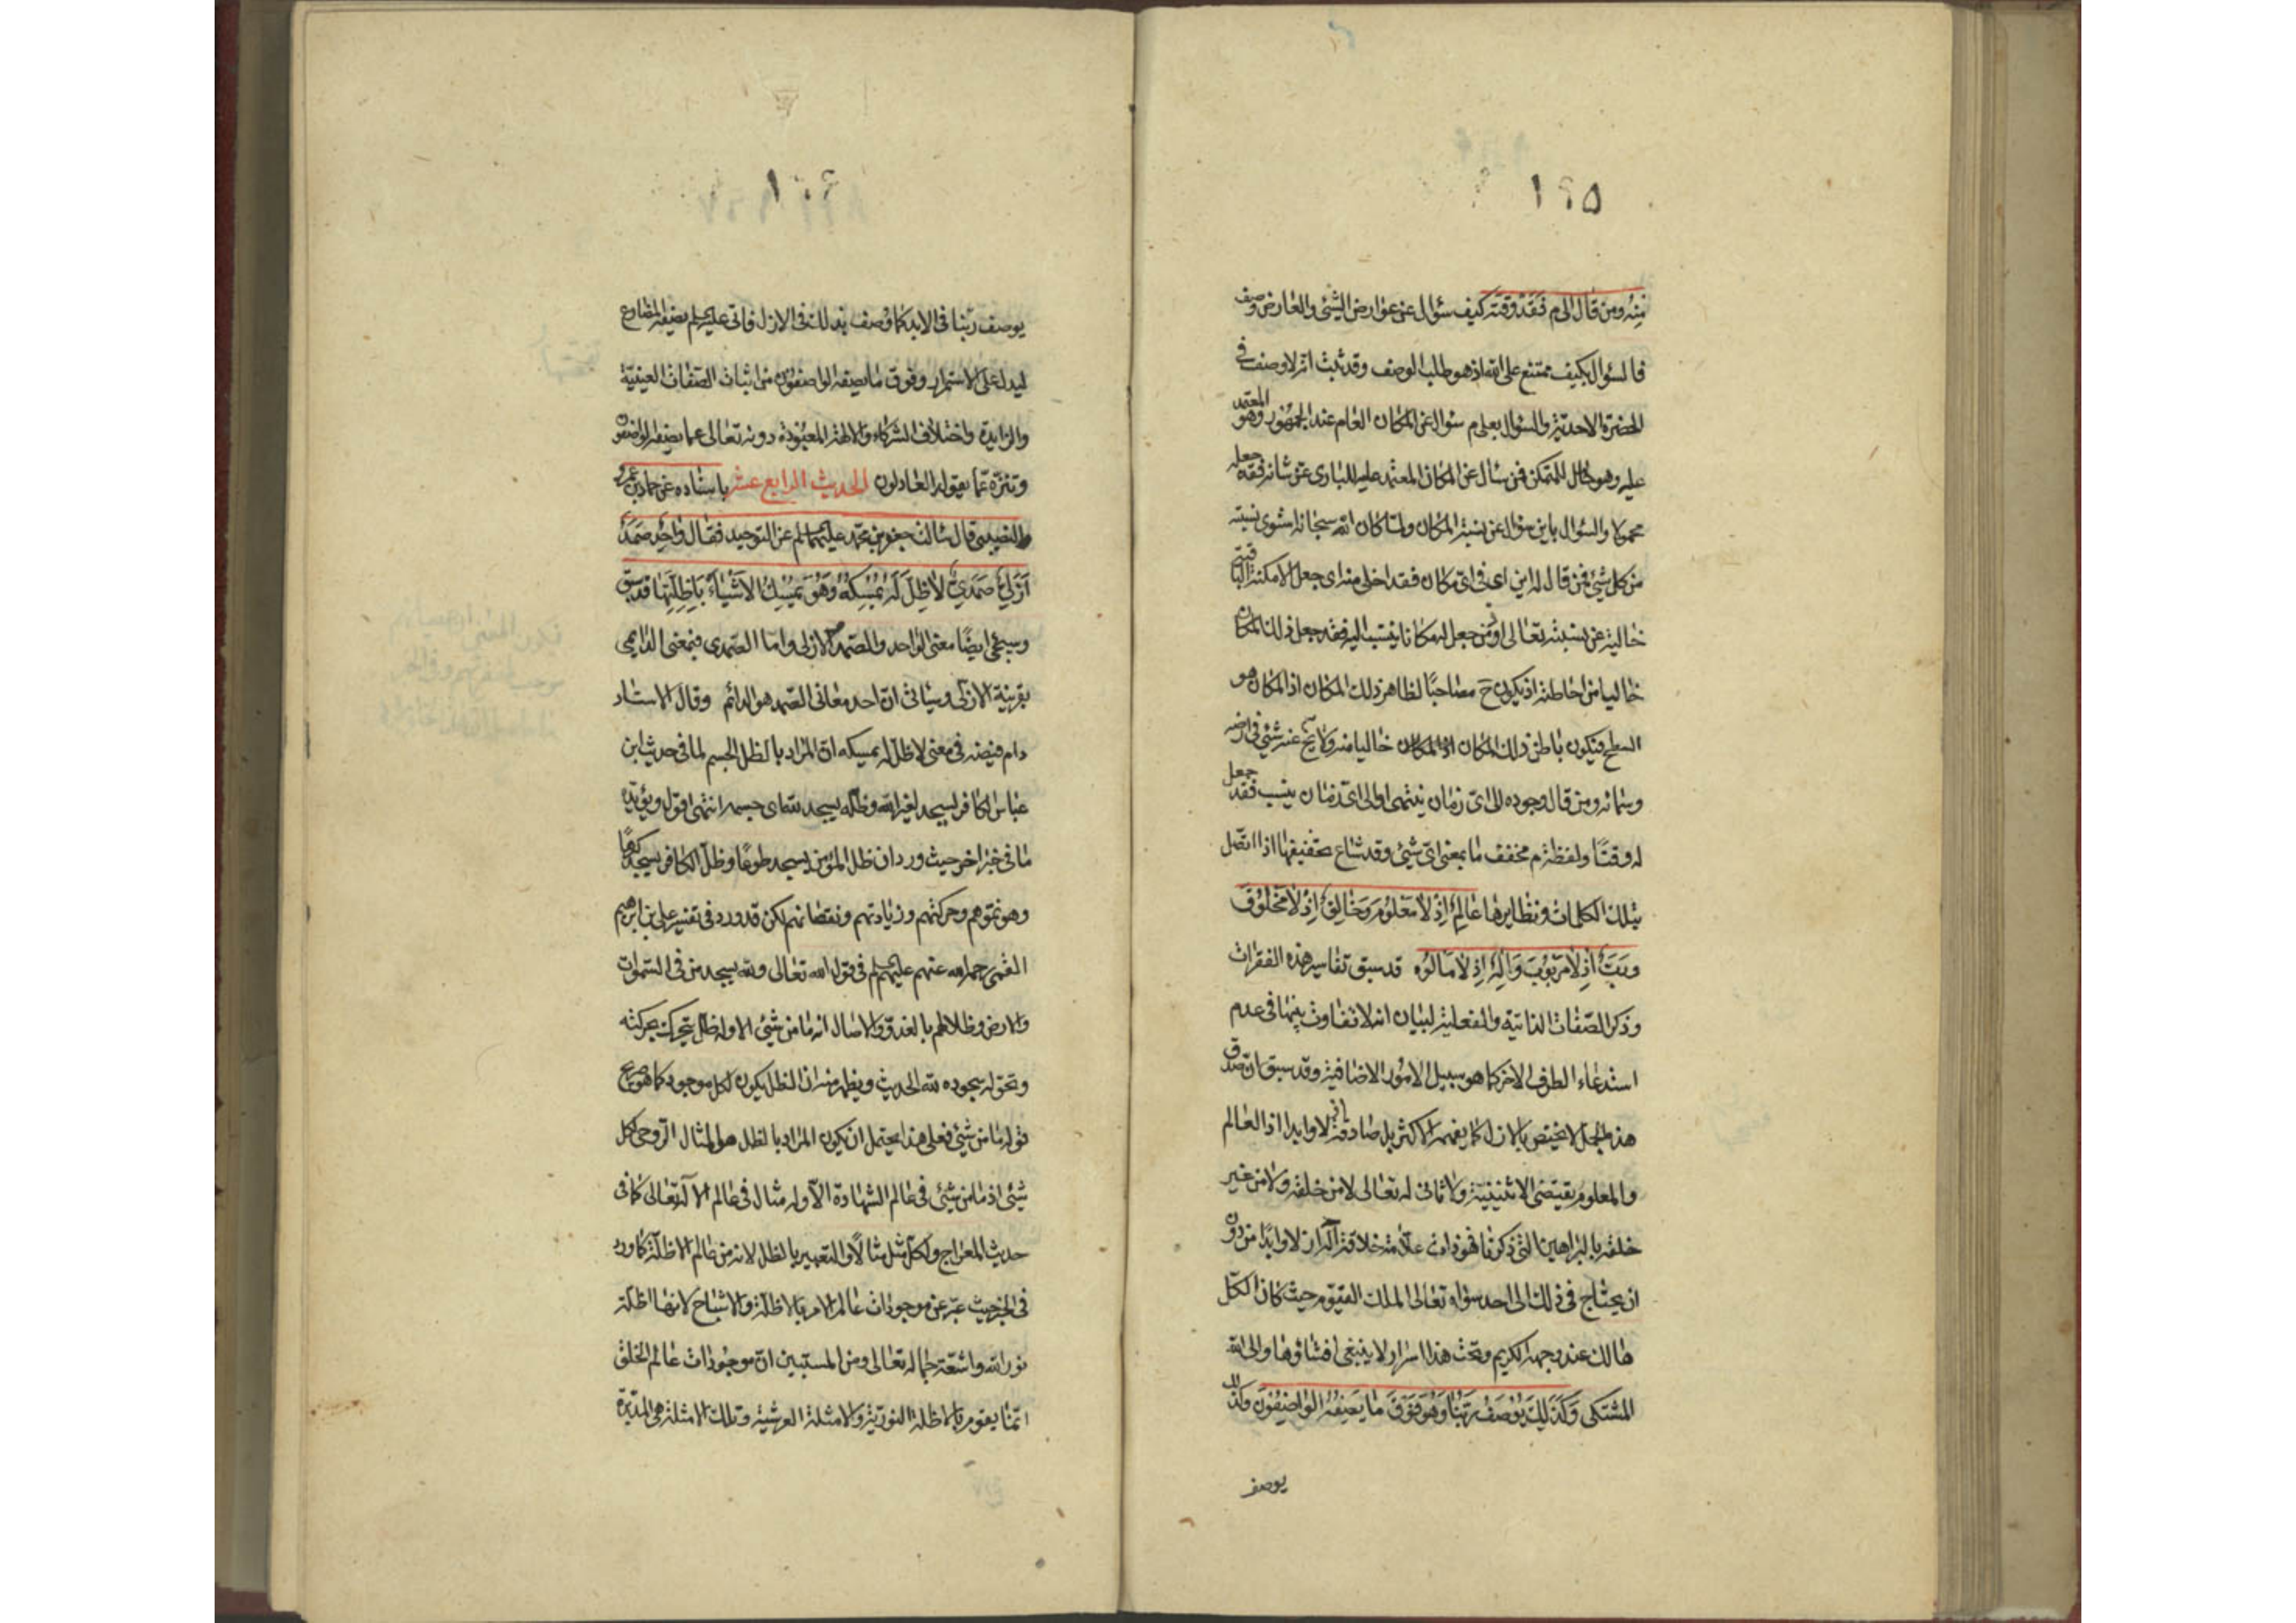 ١٢٥
منه ومن قال الى م فقد وقته كيف سؤال عن عوارض الشيئ والعارض وصف
فالسؤال بكيف ممتنع على الله اذ هو طلب الوصف وقد ثبت انه لا وصف فى
الحضرة الاحديّة والسؤال بعلى م سؤال عن المكان العام عند الجمهور وهو المعتمد
عليه وهو حامل للمتمكن فمن سأل عن المكان المعتمد عليه للبارى عزّ شانه فقد جعله
محمولا والسؤال باين سؤال عن نسبة المكان ولمّا كان الله سبحانه استوى نسبته
من كل شيئ فمن قال له اين اى فى اى مكان فقد اخلى منه اى جعل الامكنة الباقية
خالية عن نسبته تعالى او من جعل له مكانا ينتسب اليه فقد جعل ذلك المكان
خاليا من احاطته اذ يكون ح مصاحبًا لظاهر ذلك المكان اذ المكان هو
السطح فيكون باطن ذلك المكان خاليا منه ولا يخ عنه شيئ فى ارضه
وسمائه ومن قال وجوده الى اىّ زمان ينتهى او الى اىّ زمان ينسب فقد جعل
له وقتًا ولفظة م مخفف ما بمعنى اىّ شيئ وقد شاع تخفيفها اذا اتّصل
بتلك الكلمات ونظايرها عالِمٌ اِذْ لا مَعْلُومَ وَخالِقٌ اِذْ لا مَخْلُوقَ
وَرَبٌّ اِذْ لا مَرْبُوبَ وَاِلهٌ اِذْ لا مَالُوهَ قد سبق تفاسير هذه الفقرات
وذكر الصّفات الذاتية والفعلية لبيان انه لا تفاوت بينهما فى عدم
استدعاء الطرف الاخر كما هو سبيل الامور الاضافية وقد سبق ان صدق
هذه الجمل لا يختص بالازل كما يفهمه الاكثر بل صادقة ازلا وابدا اذ العالم
والمعلوم يقتضى الاثنينية ولا ثانى له تعالى لا من خلقه ولا من غير
خلقه بالبراهين التى ذكرنا فهو ذات علّامة خلاقة ازلا وابدًا من دون
ان يحتاج فى ذلك الى احد سواه تعالى الملك القيّوم حيث كان الكلّ
هالك عند وجهه الكريم وتحت هذا اسرار لا ينبغى افشاؤها والى الله
المشتكى وَكَذلِكَ يُوْصَفُ رَبُّنا وَهُوَ فَوْقَ ما يَصِفُهُ الواصِفُونَ وكذلك
يوصف
يوصف ربّنا فى الابد كما وصف بذلك فى الازل فاتى عليه السلم بصيغة المضارع
ليدل على الاستمرار وفوق ما يصفه الواصفون من اثبات الصّفات العينيّة
والزايدة واختلاف الشركاء والالهة المعبودة دونه تعالى عما يصفه الواصفون
وتنزّه عمّا يقوله العادلون الحديث الرابع عشر باسناده عن حماد بن عمرو
النصيبى قال سألت جعفر بن محمّد عليهما السلم عن التوحيد فقال واحِدٌ صَمَدٌ
اَزَلِيٌّ صَمَدِيٌّ لا ظِلَّ لَهُ يُمْسِكُهُ وَهُوَ يُمْسِكُ الاَشْياءَ بِاَظِلَّتِها قد سبق
وسيجئ ايضًا معنى الواحد والصمد الازلى وامّا الصّمدى فبمعنى الدايمى
بقرينة الازلى وسيأتى انّ احد معانى الصّمد هو الدائم وقال الاستاد
دام فيضه فى معنى لا ظلّ له يمسكه انّ المراد بالظل الجسم لما فى حديث ابن
عباس الكافر يسجد لغير الله وظلّه يسجد لله اى جسمه انتهى اقول ويؤيّده
ما فى خبر اخر حيث ورد ان ظل المؤمن يسجد طوعًا وظلّ الكافر يسجد كرهًا
وهو نموّهم وحركتهم وزيادتهم ونقصانهم لكن قد ورد فى تفسير على بن ابرهيم
القمى رحمه الله عنهم عليهم السلم فى قول الله تعالى ولله يسجد من فى السّموات
والارض وظلالهم بالغدوّ والاصال انه ما من شيئ الا وله ظلّ يتحرك بحركته
وتحوّله سجوده لله الحديث ويظهر منه ان الظل يكون لكل موجود كما هو صريح
قوله ما من شيئ فعلى هذا يحتمل ان يكون المراد بالظل هو المثال الرّوحى لكل
شيئ اذ ما من شيئ فى عالم الشهادة الّا وله مثال فى عالم الاله تعالى كما فى
حديث المعراج ولكلّ مثل مثالًا والتعبير بالظل لانه من عالم الاظلّة كما ورد
فى الخبر حيث عبّر عن موجودات عالم الامر بالاظلّة والاشباح لانها اظلّة
نور الله واشعّة جماله تعالى ومن المستبين انّ موجودات عالم الخلق
انّما يقوم بالاظلة النوريّة والامثلة العرشية وتلك الامثلة هى المدبّرة